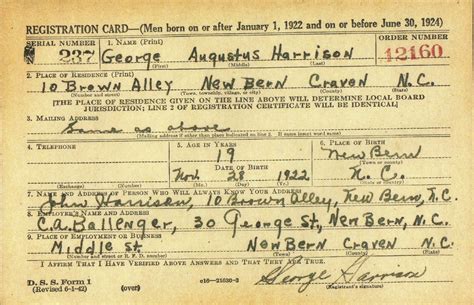 REGISTRATION CARD—(Men born on or after January 1, 1922 and on or before June 30, 1924)
SERIAL NUMBER 1. NAME (Print) ORDER NUMBER
N 237 George Augustus Harrison 12160
2. PLACE OF RESIDENCE (Print)
10 Brown Alley New Bern Craven N.C.
(Number and street) (Town, township, village, or city) (County) (State)
[THE PLACE OF RESIDENCE GIVEN ON THE LINE ABOVE WILL DETERMINE LOCAL BOARD
JURISDICTION; LINE 2 OF REGISTRATION CERTIFICATE WILL BE IDENTICAL]
3. MAILING ADDRESS
Same as above
(Mailing address if other than place indicated on line 2. If same insert word same)
4. TELEPHONE 5. AGE IN YEARS 6. PLACE OF BIRTH
19 New Bern
DATE OF BIRTH (Town or county)
Nov. 28 1922 N.C.
(Exchange) (Number) (Mo.) (Day) (Yr.) (State or country)
7. NAME AND ADDRESS OF PERSON WHO WILL ALWAYS KNOW YOUR ADDRESS
John Harrison, 10 Brown Alley, New Bern, N.C.
8. EMPLOYER'S NAME AND ADDRESS
C.A. Ballenger, 30 George St, New Bern, N.C.
9. PLACE OF EMPLOYMENT OR BUSINESS
Middle St New Bern Craven N.C.
(Number and street or R. F. D. number) (Town) (County) (State)
I AFFIRM THAT I HAVE VERIFIED ABOVE ANSWERS AND THAT THEY ARE TRUE.
D. S. S. Form 1 George Harrison
(Revised 6-1-42) (over) (Registrant's signature)